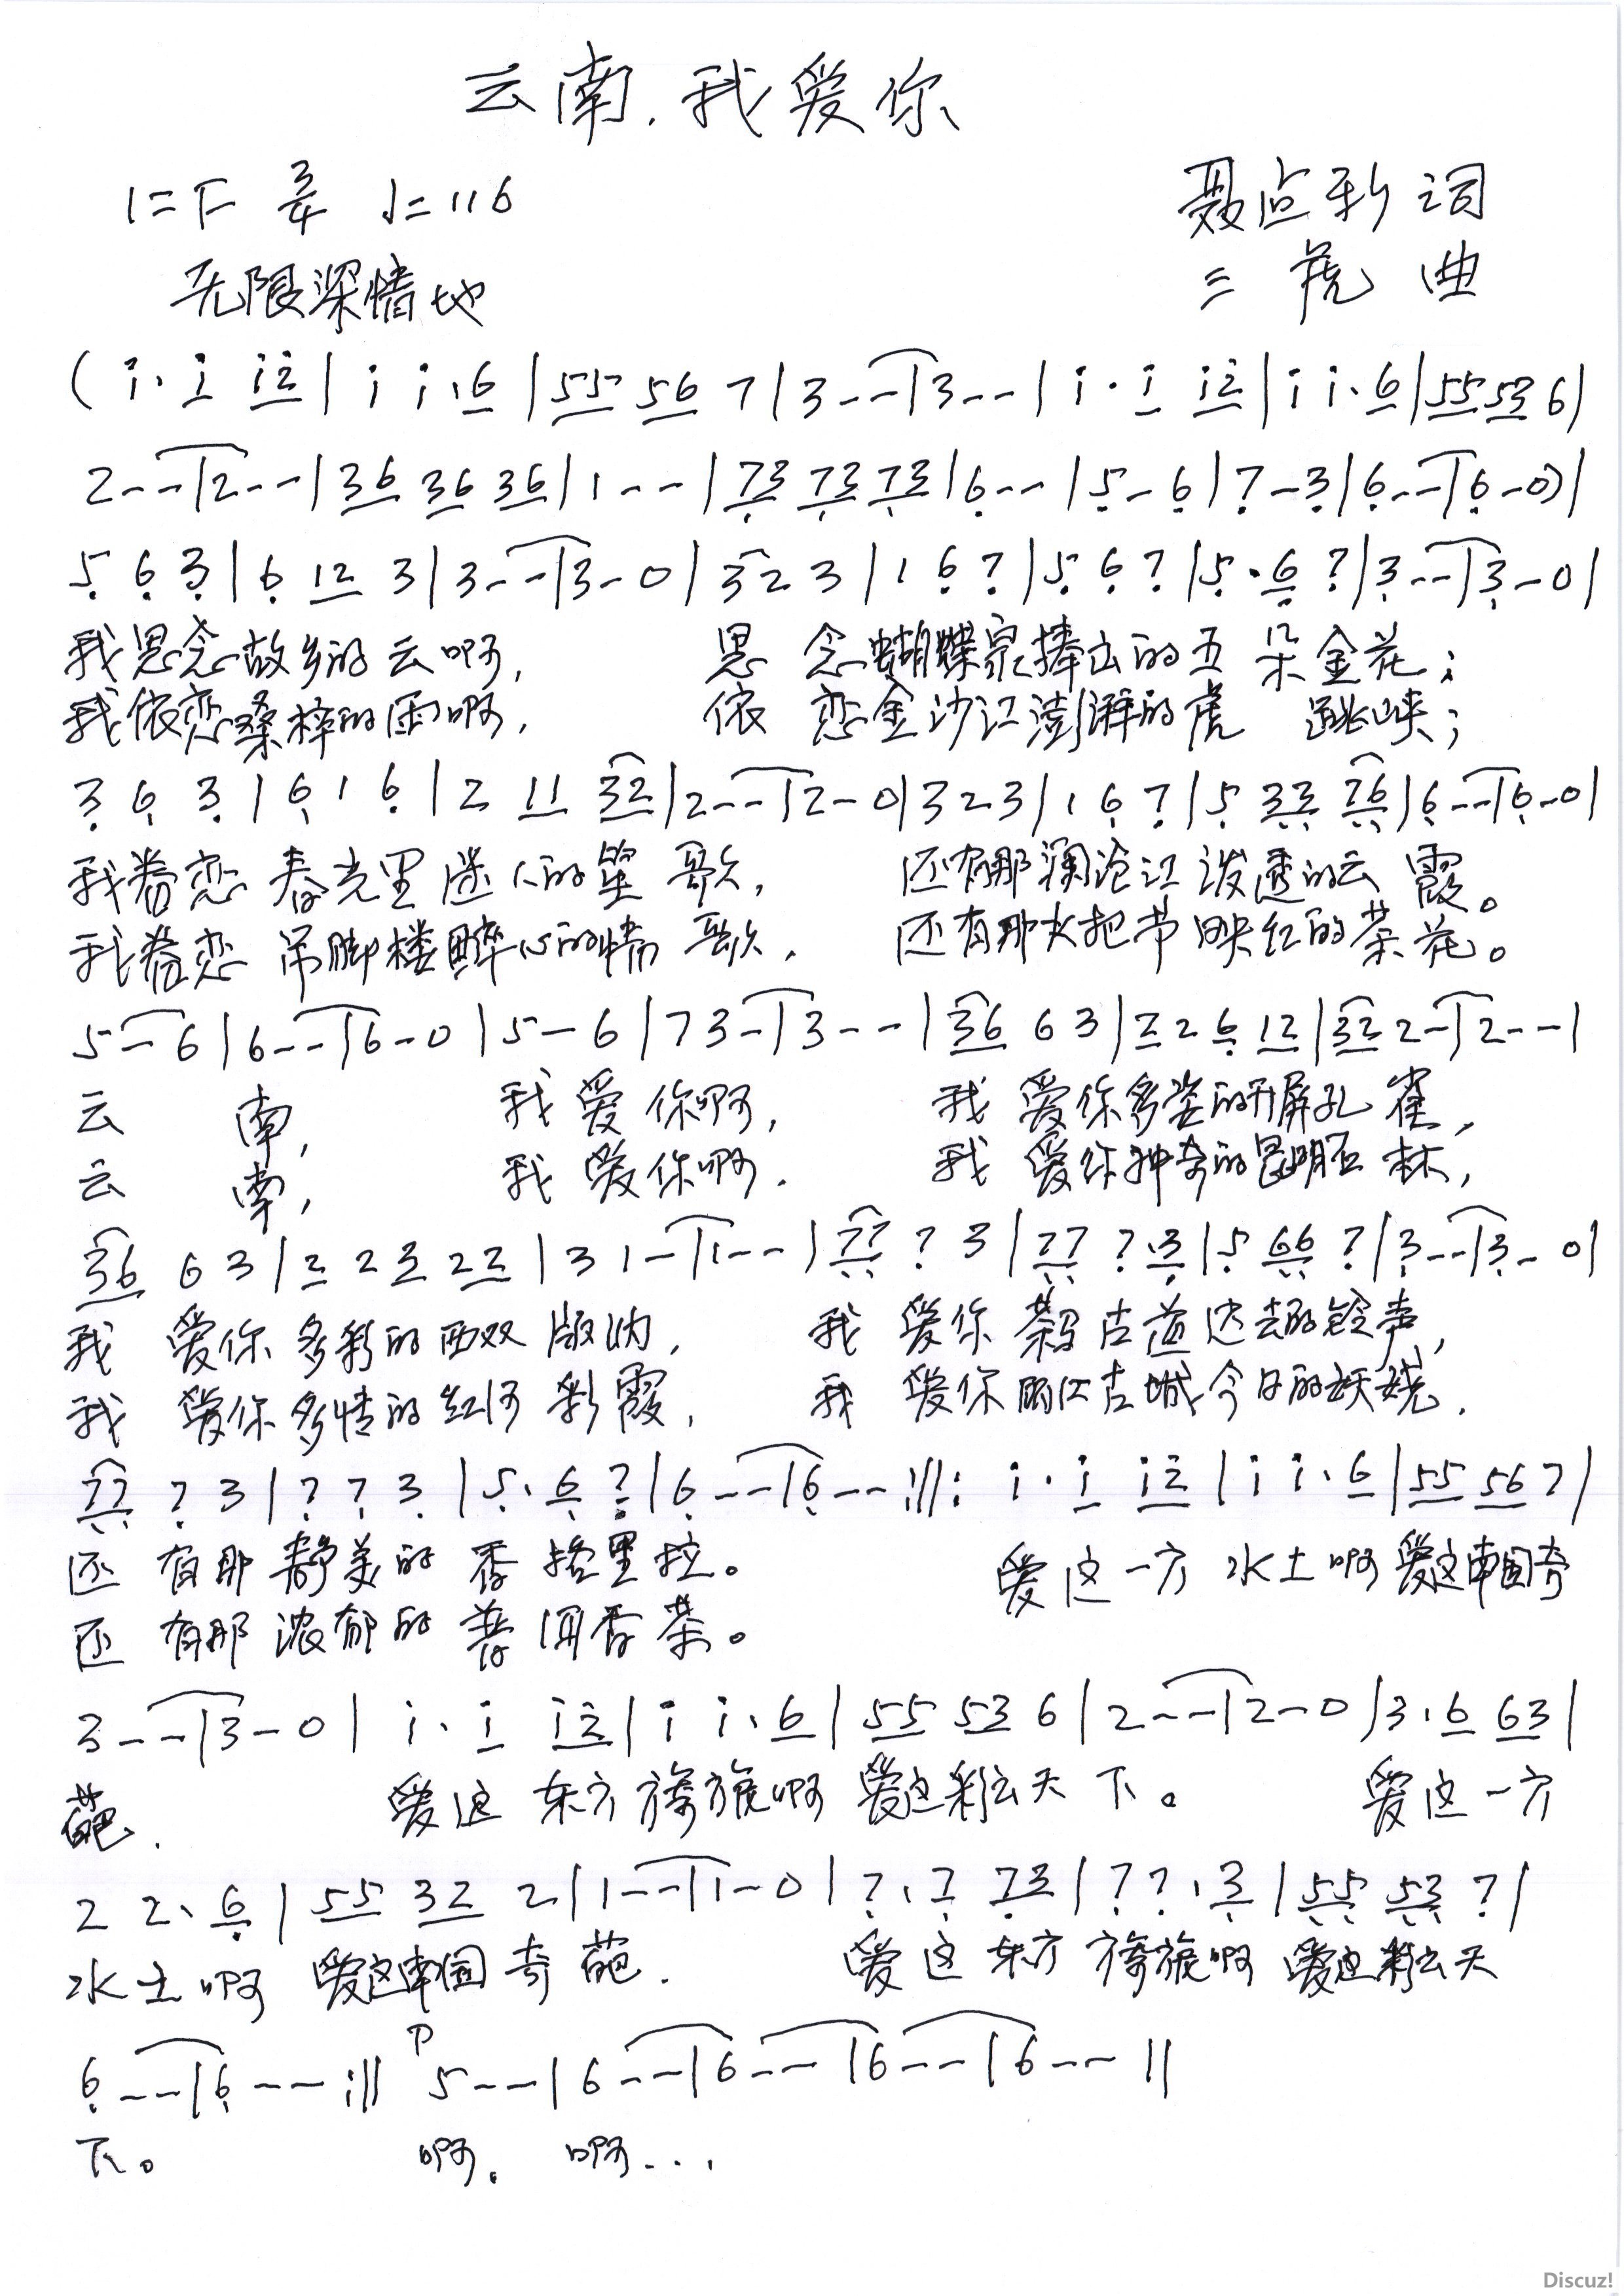 云南,我爱你
1=F 3/4 ♩=116 聂点彩 词
无限深情地 三虎 曲
( i· i i2 | i i· 6 | 55 56 7 | 3 - - | 3 - - | i · i i2 | i i· 6 | 55 53 6 |
2 - - | 2 - - | 36 36 36 | 1 - - | 73 73 73 | 6 - - | 5 - 6 | 7 - 3 | 6 - - | 6 - 0) |
5 6 3 | 6 12 3 | 3 - - | 3 - 0 | 3 2 3 | 1 6 7 | 5 6 7 | 5 · 6 7 | 3 - - | 3 - 0 |
我思念故乡的云啊, 思 念蝴蝶泉捧出的五 朵金花;
我依恋桑梓的雨啊, 依 恋金沙江澎湃的虎 跳峡;
3 6 3 | 6 1 6 | 2 11 32 | 2 - - | 2 - 0 | 3 2 3 | 1 6 7 | 5 33 76 | 6 - - | 6 - 0 |
我眷恋 春克里迷人的笙 歌, 还有那澜沧江泼透的云 霞。
我眷恋 吊脚楼醉心的情 歌, 还有那火把节映红的茶花。
5 - 6 | 6 - - | 6 - 0 | 5 - 6 | 7 3 - | 3 - - | 36 6 3 | 2 2 6 12 | 32 2 - | 2 - - |
云 南, 我爱你啊, 我 爱你多姿的开屏孔 雀,
云 南, 我爱你啊. 我 爱你神奇的昆明石 林,
36 6 3 | 2 2 2 22 | 3 1 - | 1 - - | 77 7 3 | 77 7·3 | 5 66 7 | 3 - - | 3 - 0 |
我 爱你多彩的西双 版纳, 我 爱你 茶马古道远去的铃声,
我 爱你多情的红河 彩霞, 我 爱你丽江古城今日的妖娆.
77 7 3 | 7 7 3 | 5· 6 7 | 6 - - | 6 - - :||: i · i i2 | i i· 6 | 55 56 7 |
还 有那静美的 香格里拉。 爱这一方 水土啊 爱这南国奇
还 有那浓郁的 普洱香茶。
3 - - | 3 - 0 | i· i i2 | i i· 6 | 55 53 6 | 2 - - | 2 - 0 | 3· 6 63 |
葩. 爱这 东方旖旎啊 爱这彩云天 下。 爱这一方
2 2· 6 | 55 32 2 | 1 - - | 1 - 0 | 7· 7 73 | 7 7· 3 | 55 53 7 |
水土啊 爱这南国奇葩. 爱这 东方旖旎啊 爱这彩云天
6 - - | 6 - - :|| P 5 - - | 6 - - | 6 - - | 6 - - | 6 - - ||
下。 啊. 啊...
Discuz!